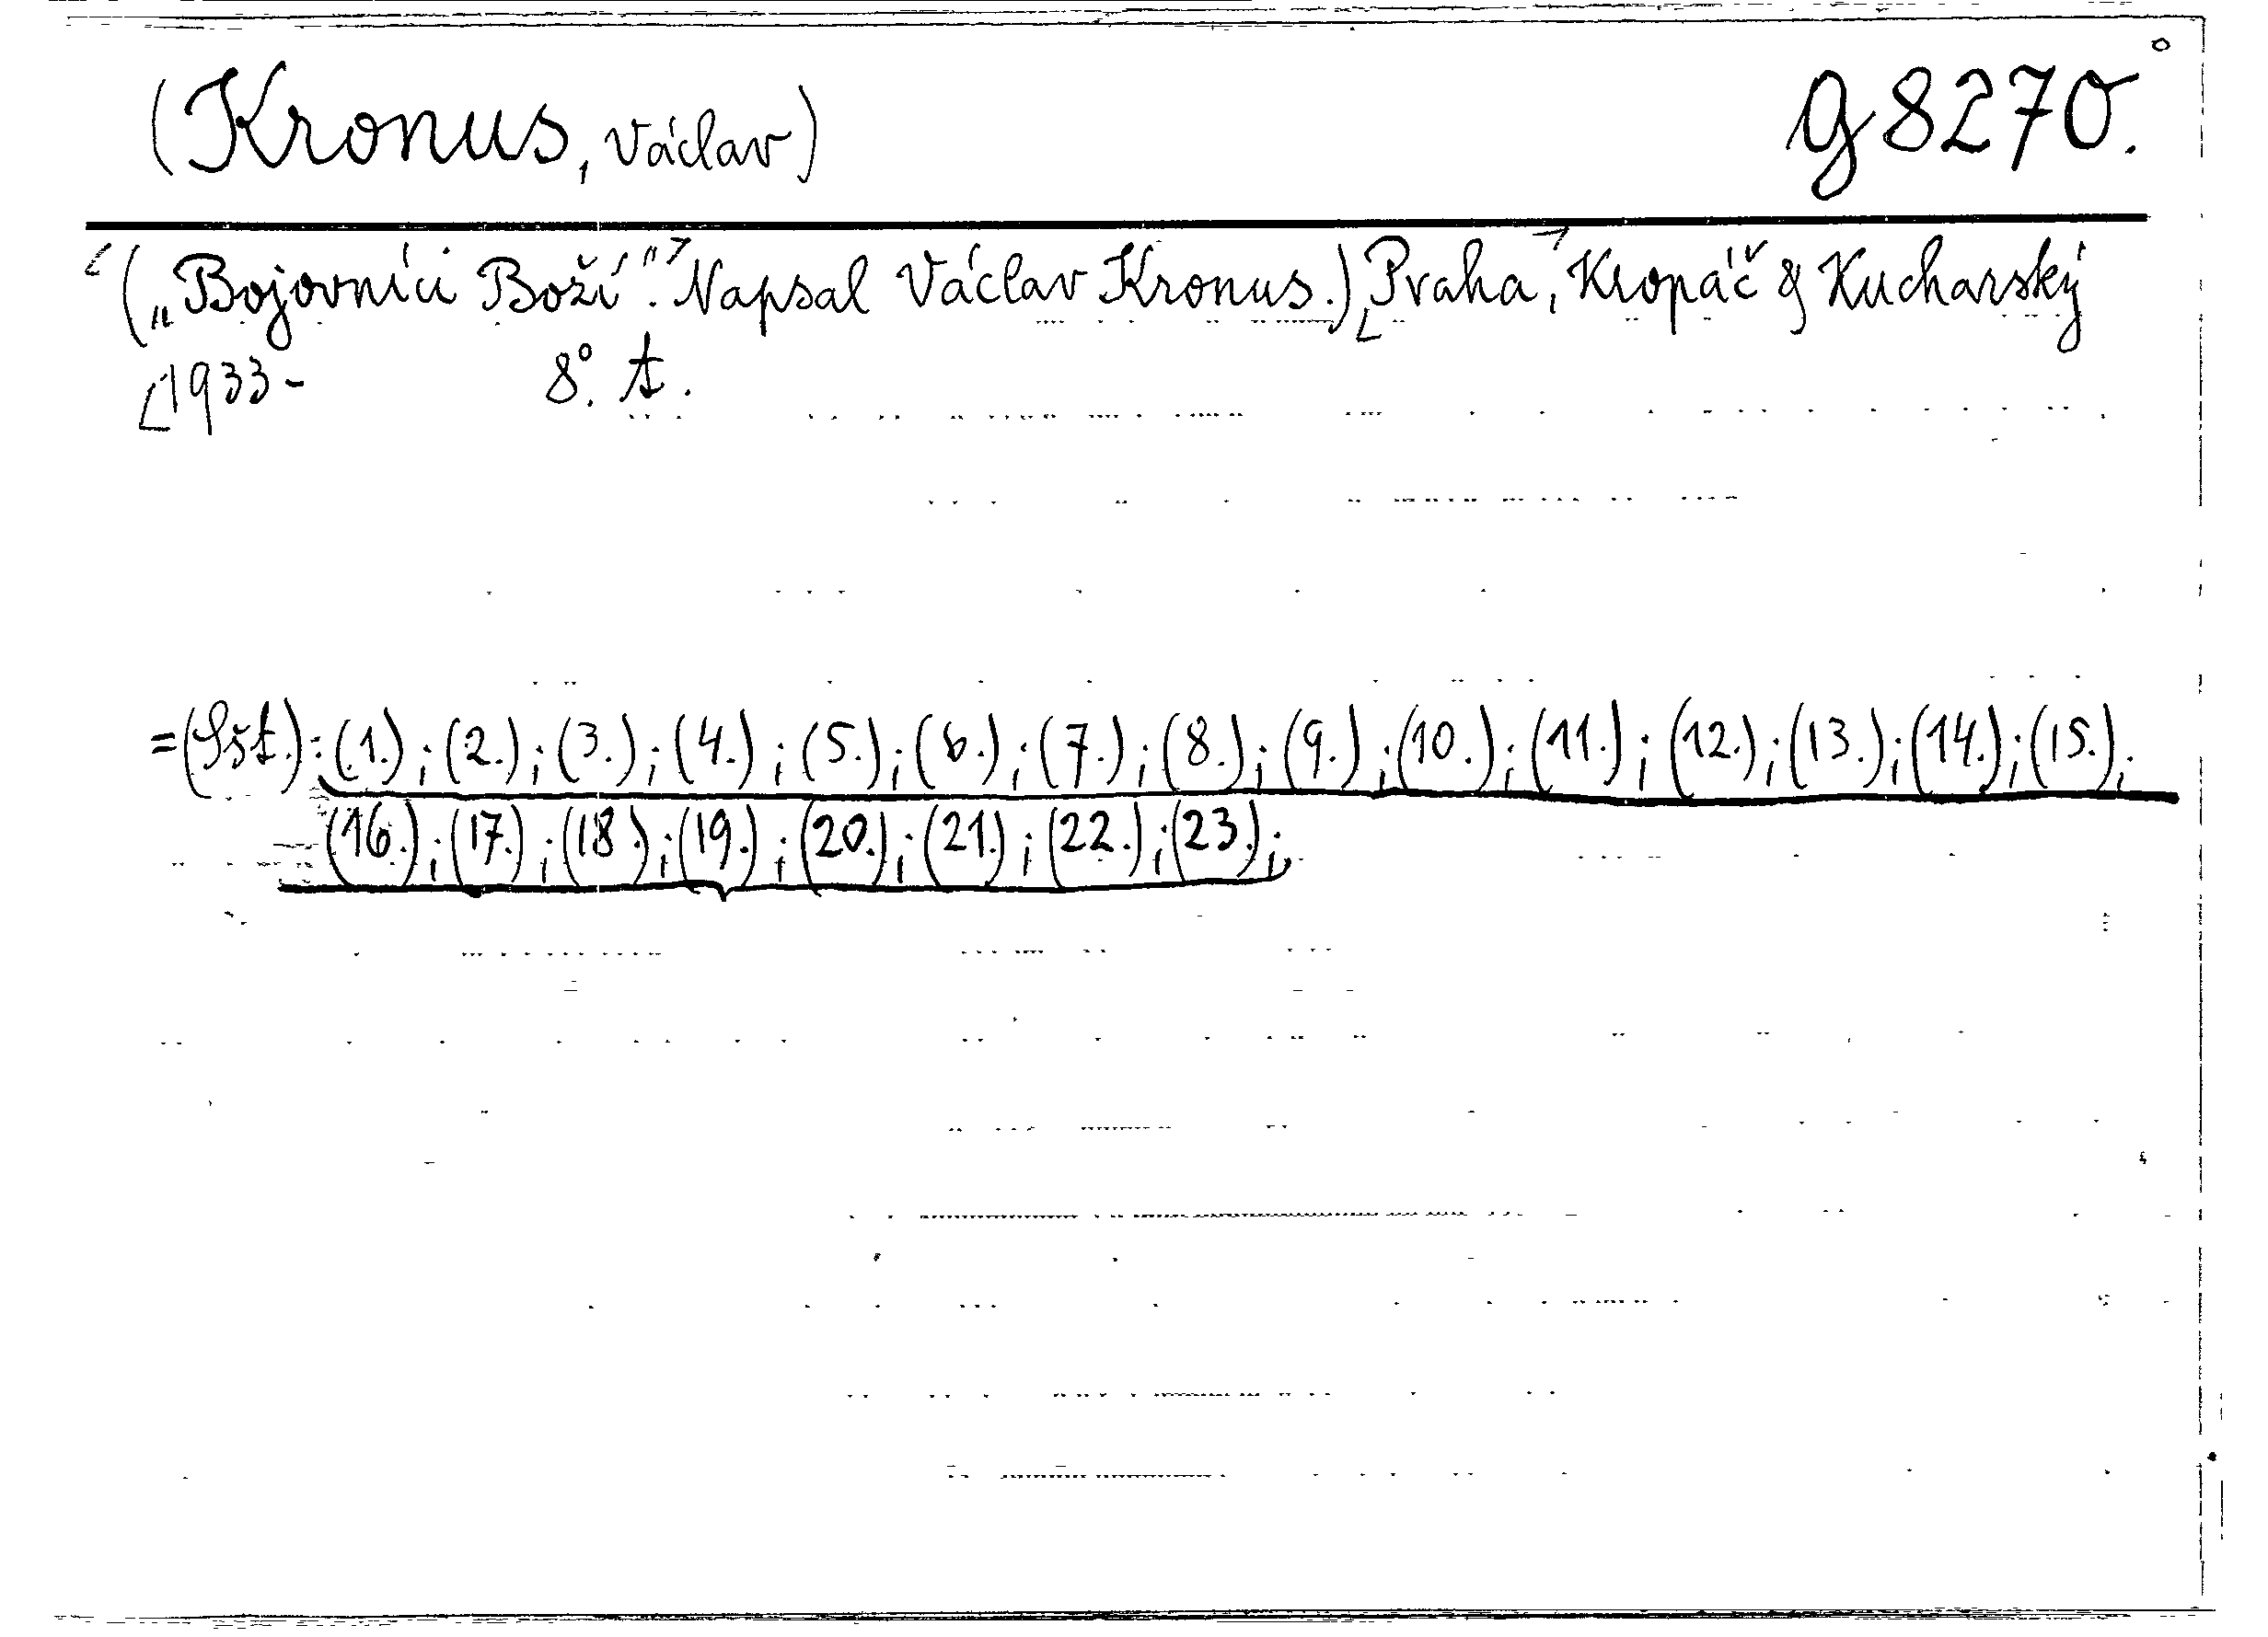 (Kronus, Václav) g 8270.
(„Bojovníci Boží". Napsal Václav Kronus.) Praha, Kropáč & Kucharský
[1933- 8°. t.
=(Sšt.): (1.); (2.); (3.); (4.); (5.); (6.); (7.); (8.); (9.); (10.); (11.); (12.); (13.); (14.); (15.);
(16.); (17.); (18.); (19.); (20.); (21.); (22.); (23.);